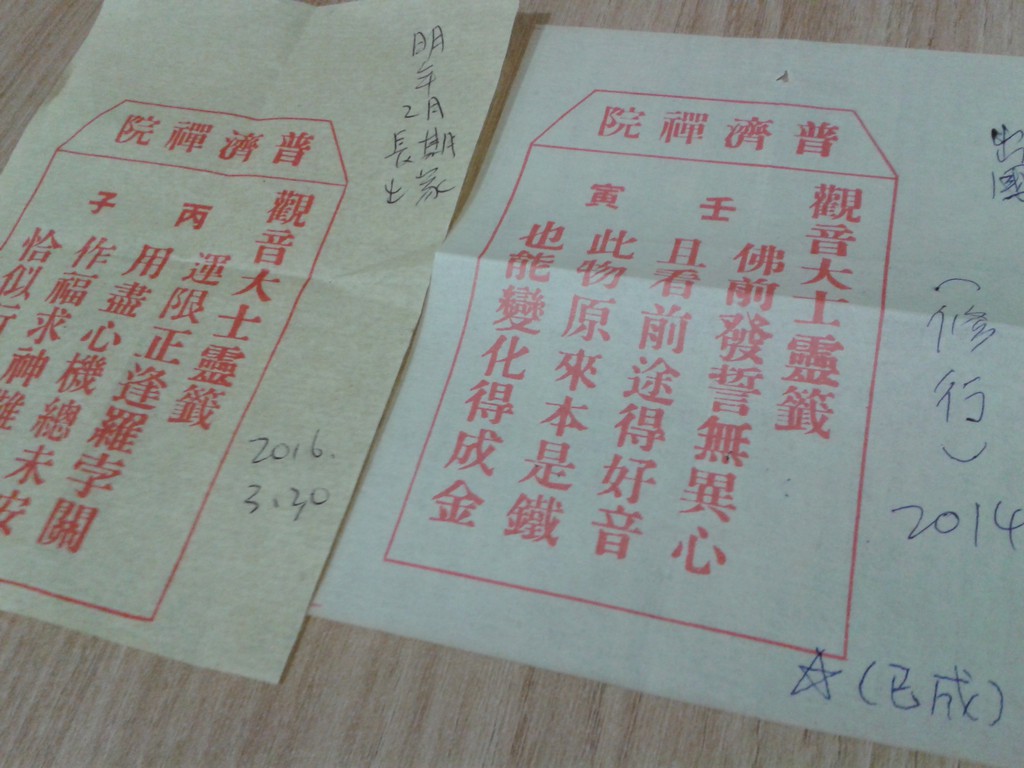 普濟禪院
觀音大士靈籤
丙子
運限正逢羅字關
用盡心機總未安
作福求神難
恰似行
明年
2月
長期
出家
2016.
3.30
普濟禪院
觀音大士靈籤
壬寅
佛前發誓無異心
且看前途得好音
此物原來本是鐵
也能變化得成金
出國
(修行)
2014
☆(已成)